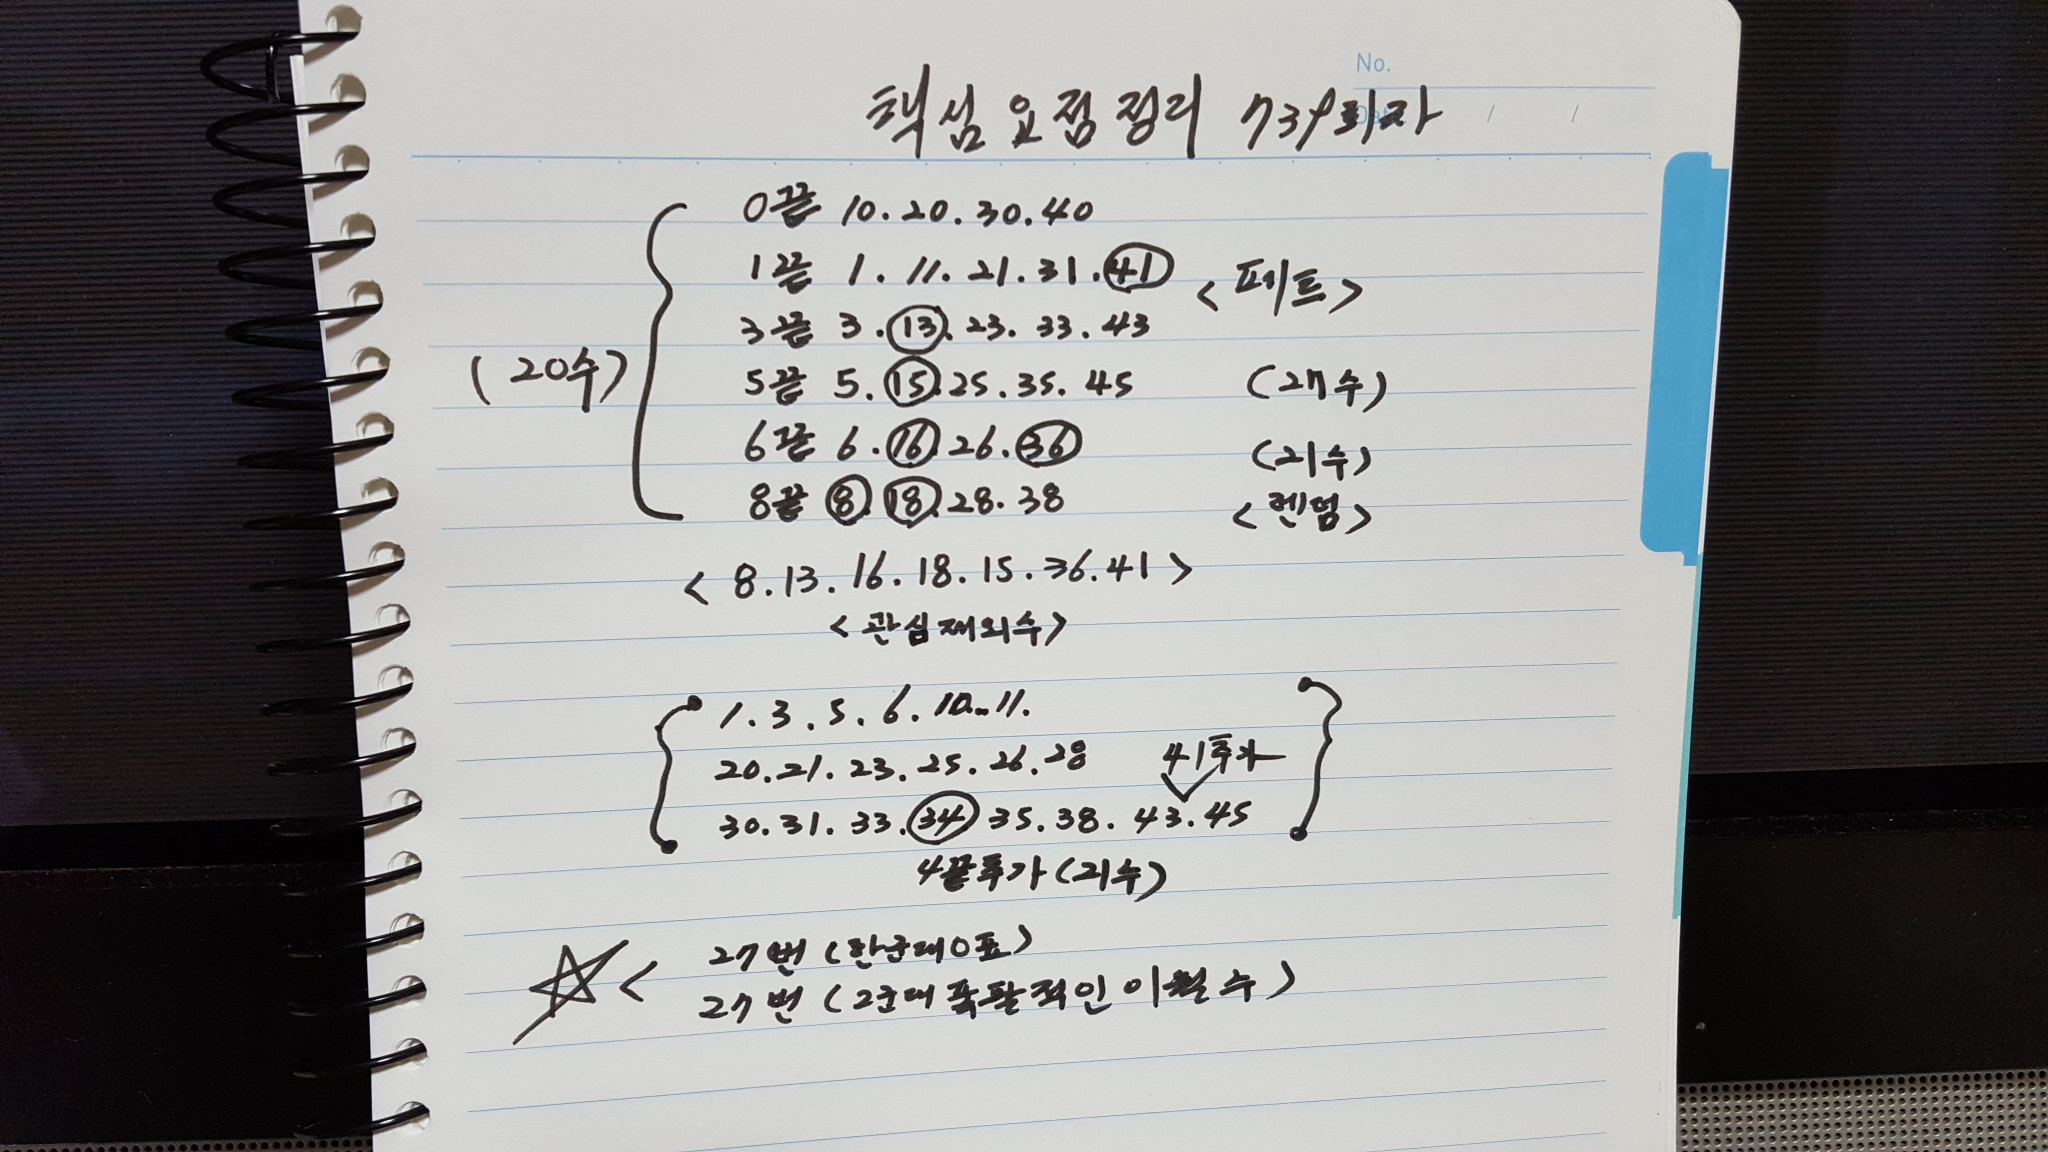 No.
핵심요점정리 739회차
0끝 10.20.30.40
1끝 1.11.21.31.41
<퍼펙트>
3끝 3.13.23.33.43
(20수)
5끝 5.15.25.35.45
(27수)
6끝 6.16.26.36
(21수)
8끝 8.18.28.38
<렌덤>
<8.13.16.18.15.36.41>
<관심제외수>
1.3.5.6.10..11.
20.21.23.25.26.28
41추가
30.31.33.34.35.38.43.45
4끝추가(21수)
27번(한군데0표)
27번(2군데폭팔적인이월수)